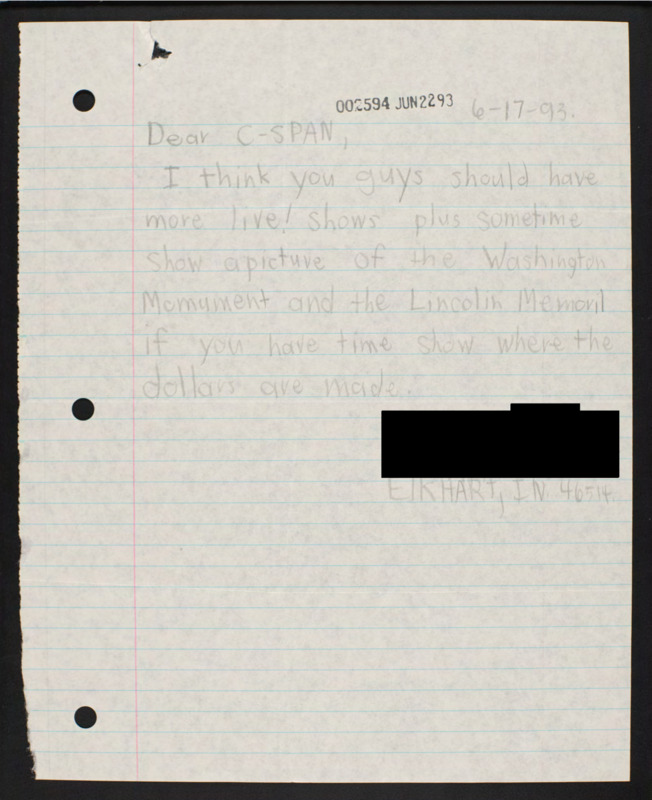 002594 JUN2293
6-17-93.
Dear C-SPAN,
I think you guys should have
more live! shows plus sometime
show apicture of the Washington
Momument and the Lincolin Memoril
if you have time show where the
dollars are made.
ElKHART, IN. 46514.